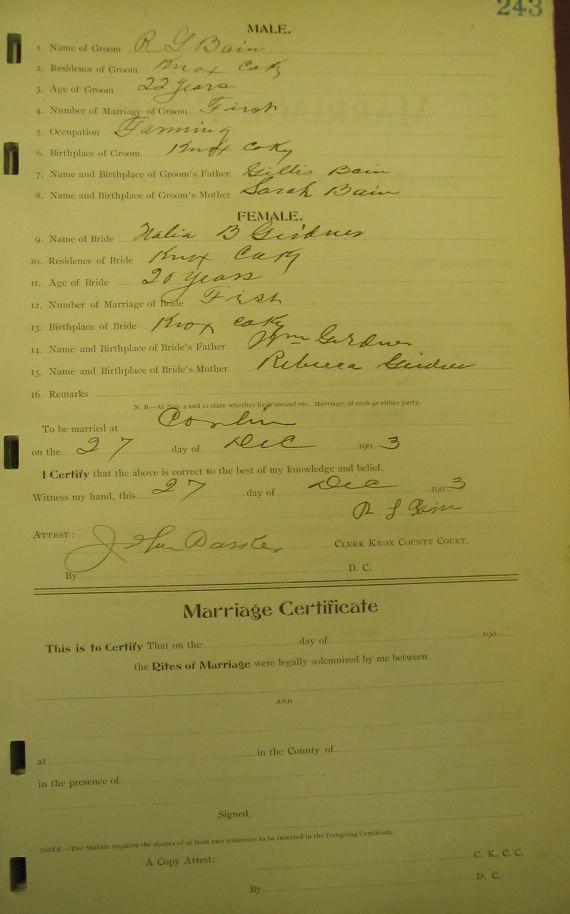 243
MALE.
1. Name of Groom R G Bain
2. Residence of Groom Knox Co Ky
3. Age of Groom 22 years
4. Number of Marriage of Groom First
5. Occupation Farming
6. Birthplace of Groom Knox Co Ky
7. Name and Birthplace of Groom's Father Gillis Bain
8. Name and Birthplace of Groom's Mother Sarah Bain
FEMALE.
9. Name of Bride B Girdner
10. Residence of Bride Knox Co Ky
11. Age of Bride 20 years
12. Number of Marriage of Bride First
13. Birthplace of Bride Knox Co Ky
14. Name and Birthplace of Bride's Father Wm Girdner
15. Name and Birthplace of Bride's Mother Rebecca Girdner
16. Remarks
N. B.—At Nos. 4 and 12 state whether first, second etc., Marriage, of each or either party.
To be married at Corbin
on the 27 day of Dec 1903
I Certify that the above is correct to the best of my knowledge and belief.
Witness my hand, this 27 day of Dec 1903
Bain
ATTEST: CLERK KNOX COUNTY COURT.
By D. C.
Marriage Certificate
This is to Certify That on the day of 190
the Rites of Marriage were legally solemnized by me between
AND
at in the County of
in the presence of
Signed,
NOTE.—The Statute requires the names of at least two witnesses to be inserted in the foregoing Certificate.
A Copy Attest: C. K. C. C.
By D. C.